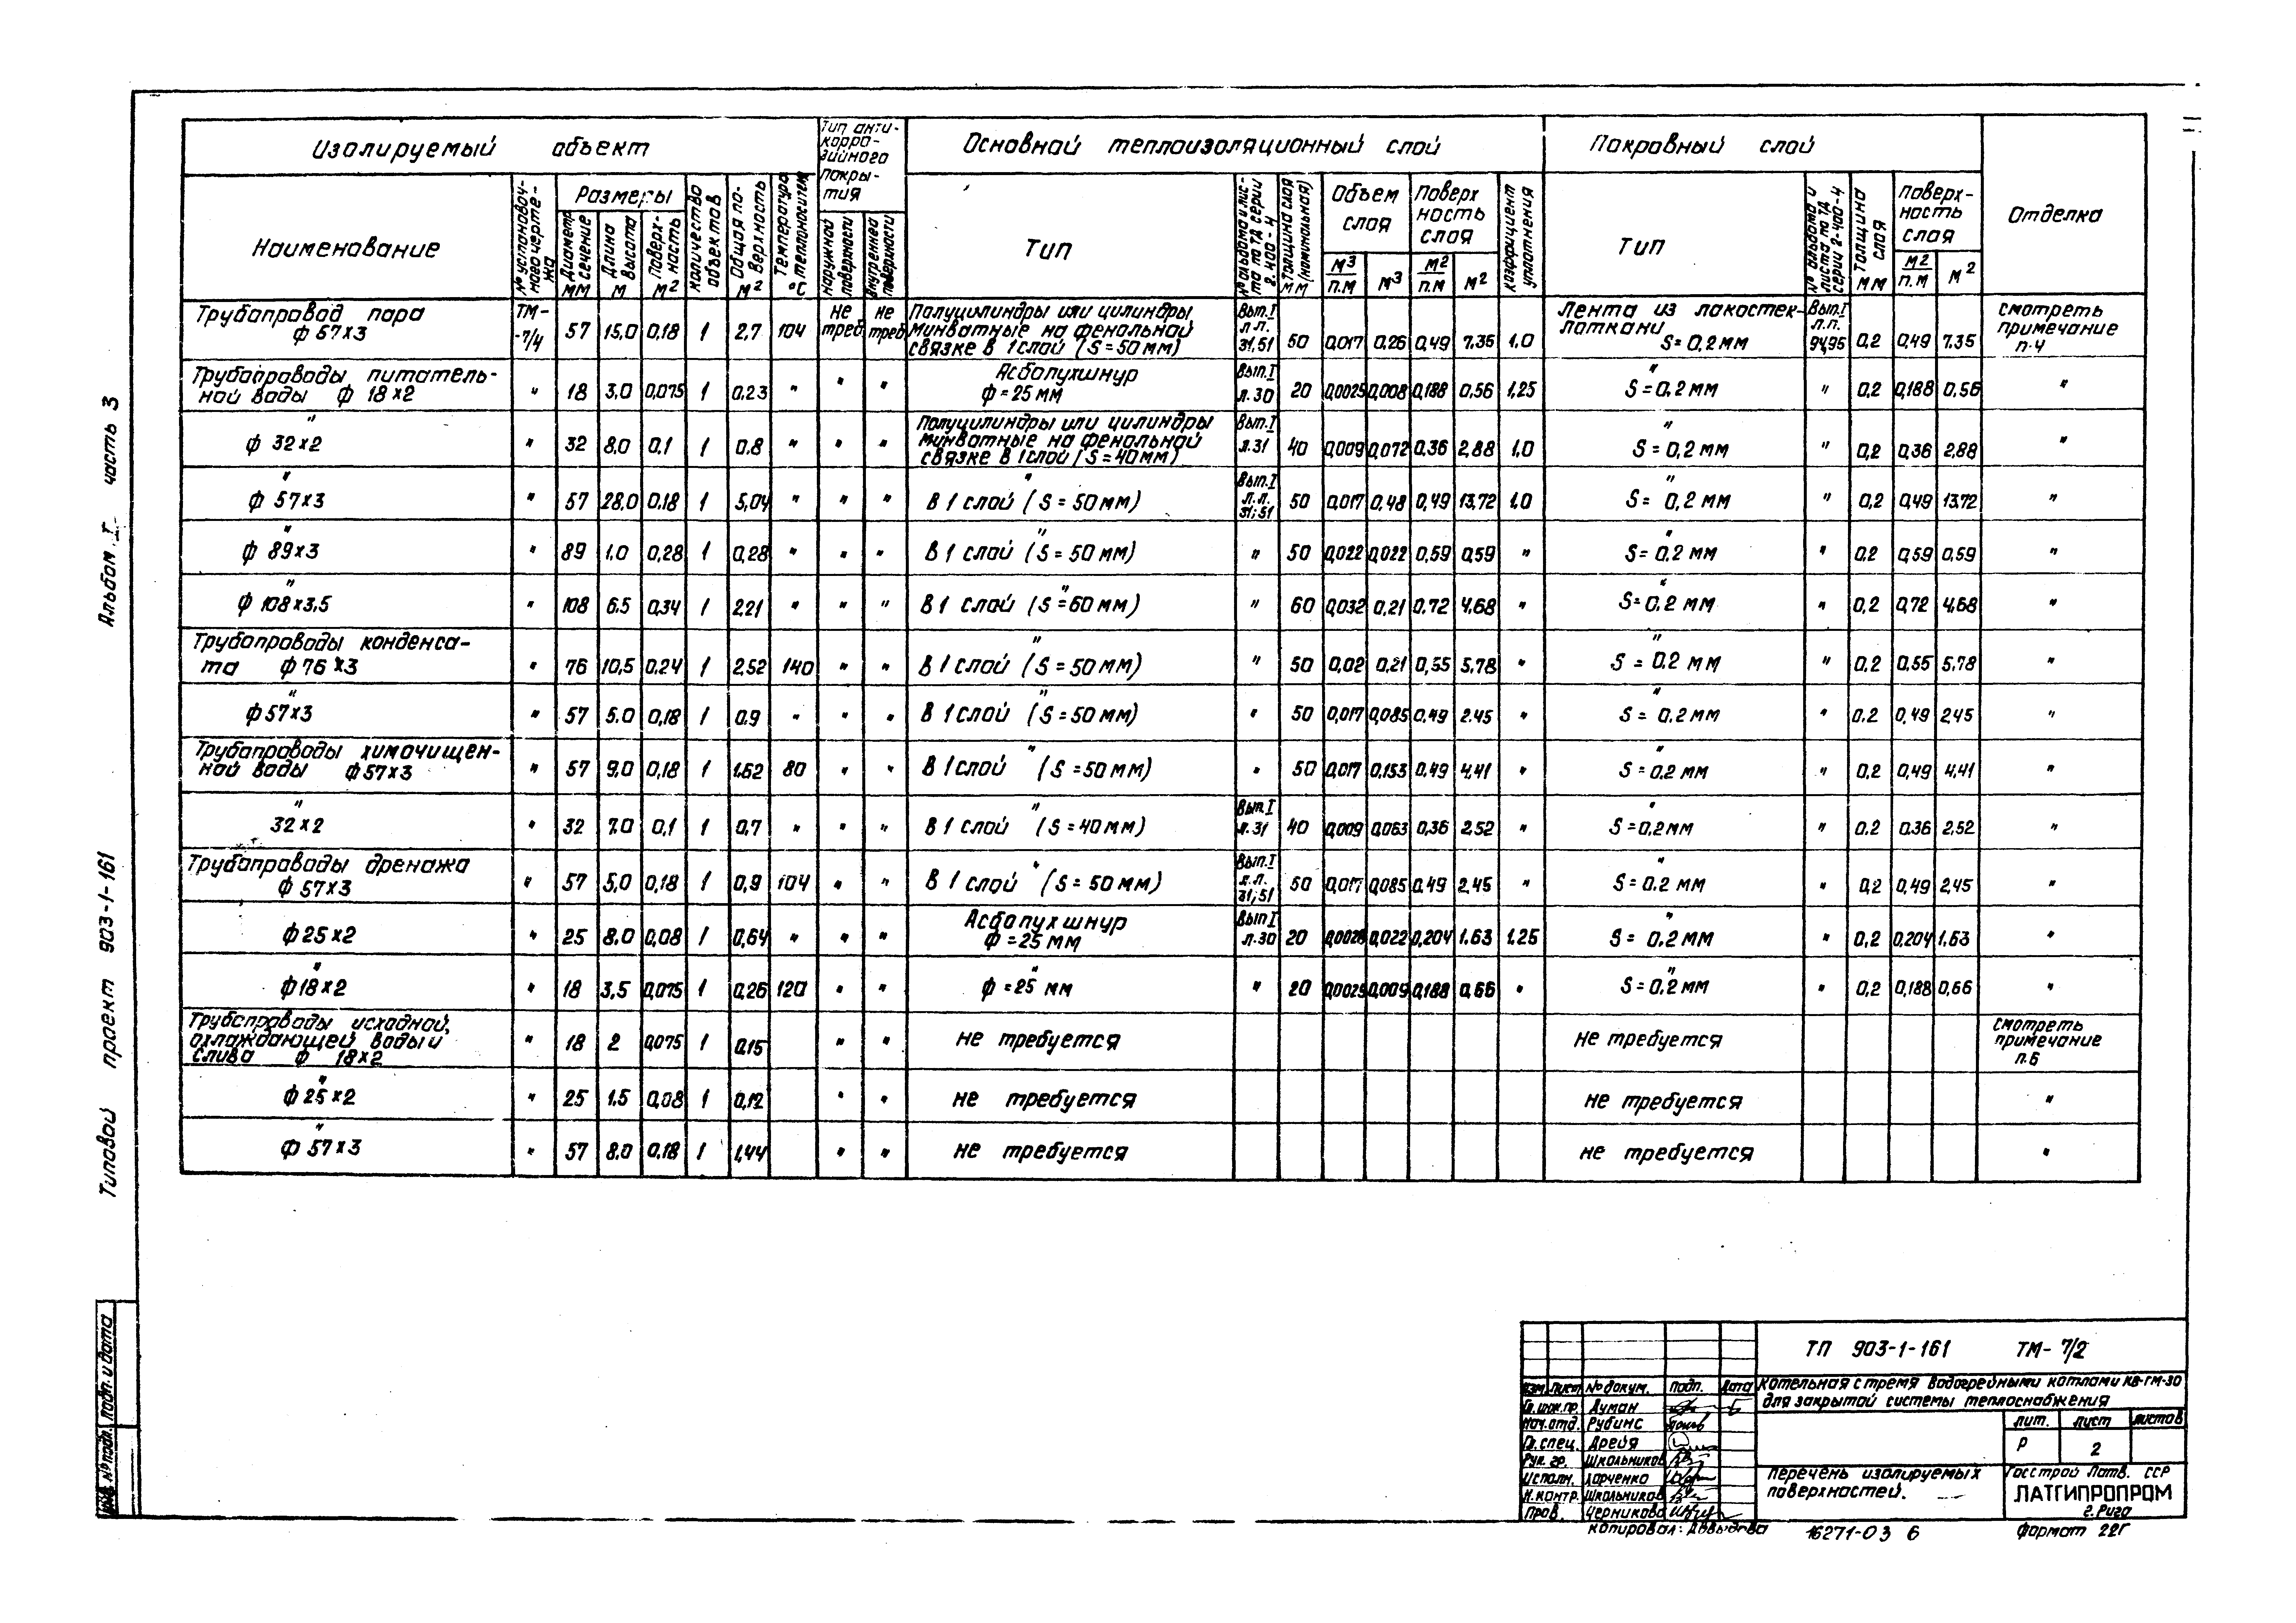 Изолируемый объект
Тип анти-
корро-
зийного
покры-
тия
Основной теплоизоляционный слой
Покровный слой
Отделка
Наименование
№ установоч-
ного черте-
жа
Размеры
Диаметр сечение мм
Длина высота м
Поверх-
ность м2
количество объектов
Общая по-
верхность м2
Температура теплоносителя °С
наружной поверхности
внутренней поверхности
Тип
№ альбома и лис-
та по ТД серии 2.400-4
Толщина слоя (номинальная) мм
Объем слоя
м3/п.м м3
Поверх
ность
слоя
м2/п.м м2
Коэффициент уплотнения
Тип
№ альбома и листа по ТД серии 2-400-4
Толщина слоя мм
Поверх-
ность
слоя
м2/п.м м2
Трубопровод пара ф 57х3 ТМ--7/4 57 15,0 0,18 1 2,7 104 не треб не треб Полуцилиндры или цилиндры минватные на фенольной связке в 1 слой (S=50мм) Вып.I л.л. 31,51 50 0,017 0,26 0,49 7.35 1,0 Лента из лакостек-лоткани S=0,2мм Вып.I л.л. 94,95 0,2 0,49 7.35 смотреть примечание п.4
Трубопроводы питатель-ной воды ф 18х2 " 18 3,0 0,075 1 0,23 " " " Асбопухшнур ф=25мм Вып.I л.30 20 0,0025 0,008 0,188 0,56 1,25 " S=0,2мм " 0,2 0,188 0,56 "
" ф 32х2 " 32 8,0 0,1 1 0.8 " " " Полуцилиндры или цилиндры минватные на фенольной связке в 1слой (S=40мм) Вып.I л.31 40 0,009 0,072 0,36 2,88 1,0 " S=0,2мм " 0,2 0,36 2,88 "
" ф 57х3 " 57 28,0 0,18 1 5,04 " " " " в 1 слой (S=50мм) Вып.I л.л. 31;51 50 0,017 0,48 0,49 13,72 1,0 " S=0,2мм " 0,2 0,49 13.72 "
" ф 89х3 " 89 1.0 0,28 1 0,28 " " " " в 1 слой (S=50мм) " 50 0,022 0,022 0,59 0,59 " " S=0,2мм " 0.2 0,59 0,59 "
" ф 108х3,5 " 108 6.5 0,34 1 2,21 " " " " в 1 слой (S=60мм) " 60 0,032 0,21 0,72 4,68 " " S=0,2мм " 0,2 0,72 4,68 "
Трубопроводы конденса-та ф 76х3 " 76 10,5 0,24 1 2,52 140 " " " в 1 слой (S=50мм) " 50 0,02 0,21 0,55 5,78 " " S=0,2мм " 0,2 0,55 5.78 "
" ф57х3 " 57 5.0 0,18 1 0.9 " " " " в 1слой (S=50мм) " 50 0,017 0,085 0,49 2.45 " " S=0,2мм " 0.2 0,49 2.45 "
Трубопроводы химочищен-ной воды ф57х3 " 57 9,0 0,18 1 1.62 80 " " " в 1слой (S=50мм) " 50 0,017 0,153 0,49 4.41 " " S=0,2мм " 0,2 0,49 4,41 "
" 32х2 " 32 7.0 0,1 1 0,7 " " " " в 1 слой (S=40мм) Вып.I л.31 40 0,009 0,063 0,36 2,52 " " S=0,2мм " 0.2 0.36 2,52 "
Трубопроводы дренажа ф 57х3 " 57 5,0 0,18 1 0,9 104 " " " в 1 слой (S=50мм) Вып.I л.л. 31;51 50 0,017 0,085 0.49 2.45 " " S=0.2мм " 0,2 0,49 2,45 "
ф25х2 " 25 8,0 0,08 1 0,64 " " " Асбопухшнур ф=25мм Вып I л.30 20 0,0028 0,022 0,204 1.63 1.25 " S=0,2мм " 0,2 0,204 1.63 "
" ф18х2 " 18 3,5 0,075 1 0,26 120 " " " ф=25мм " 20 0,0025 0,009 0,188 0,66 " " S=0,2мм " 0,2 0,188 0,66 "
Трубопроводы исходной, охлаждающей воды и слива ф 18х2 " 18 2 0,075 1 0,15 " " не требуется не требуется смотреть примечание п.6
" ф25х2 " 25 1.5 0,08 1 0,12 " " не требуется не требуется "
" ф57х3 " 57 8.0 0.18 1 1,44 " " не требуется не требуется "
Альбом I часть 3
Типовой проект 903-1-161
Инв.№подл. подп. и дата
ТП 903-1-161 ТМ-7/2
Изм. Лист № докум. подп. Дата
Гл.инж.пр. Думан
Нач.отд. Рубинс
Гл.спец. Дрейя
Рук. гр. Школьников
Исполн. Харченко
Н.контр. Школьников
Пров. Черникова
Котельная с тремя водогрейными котлами КВ-ГМ-30
для закрытой системы теплоснабжения
лит. лист листов
Р 2
перечень изолируемых
поверхностей.
Госстрой Латв. ССР
ЛАТГИПРОПРОМ
г.Рига
копировал: Давыдова
16271-03 6
Формат 22Г